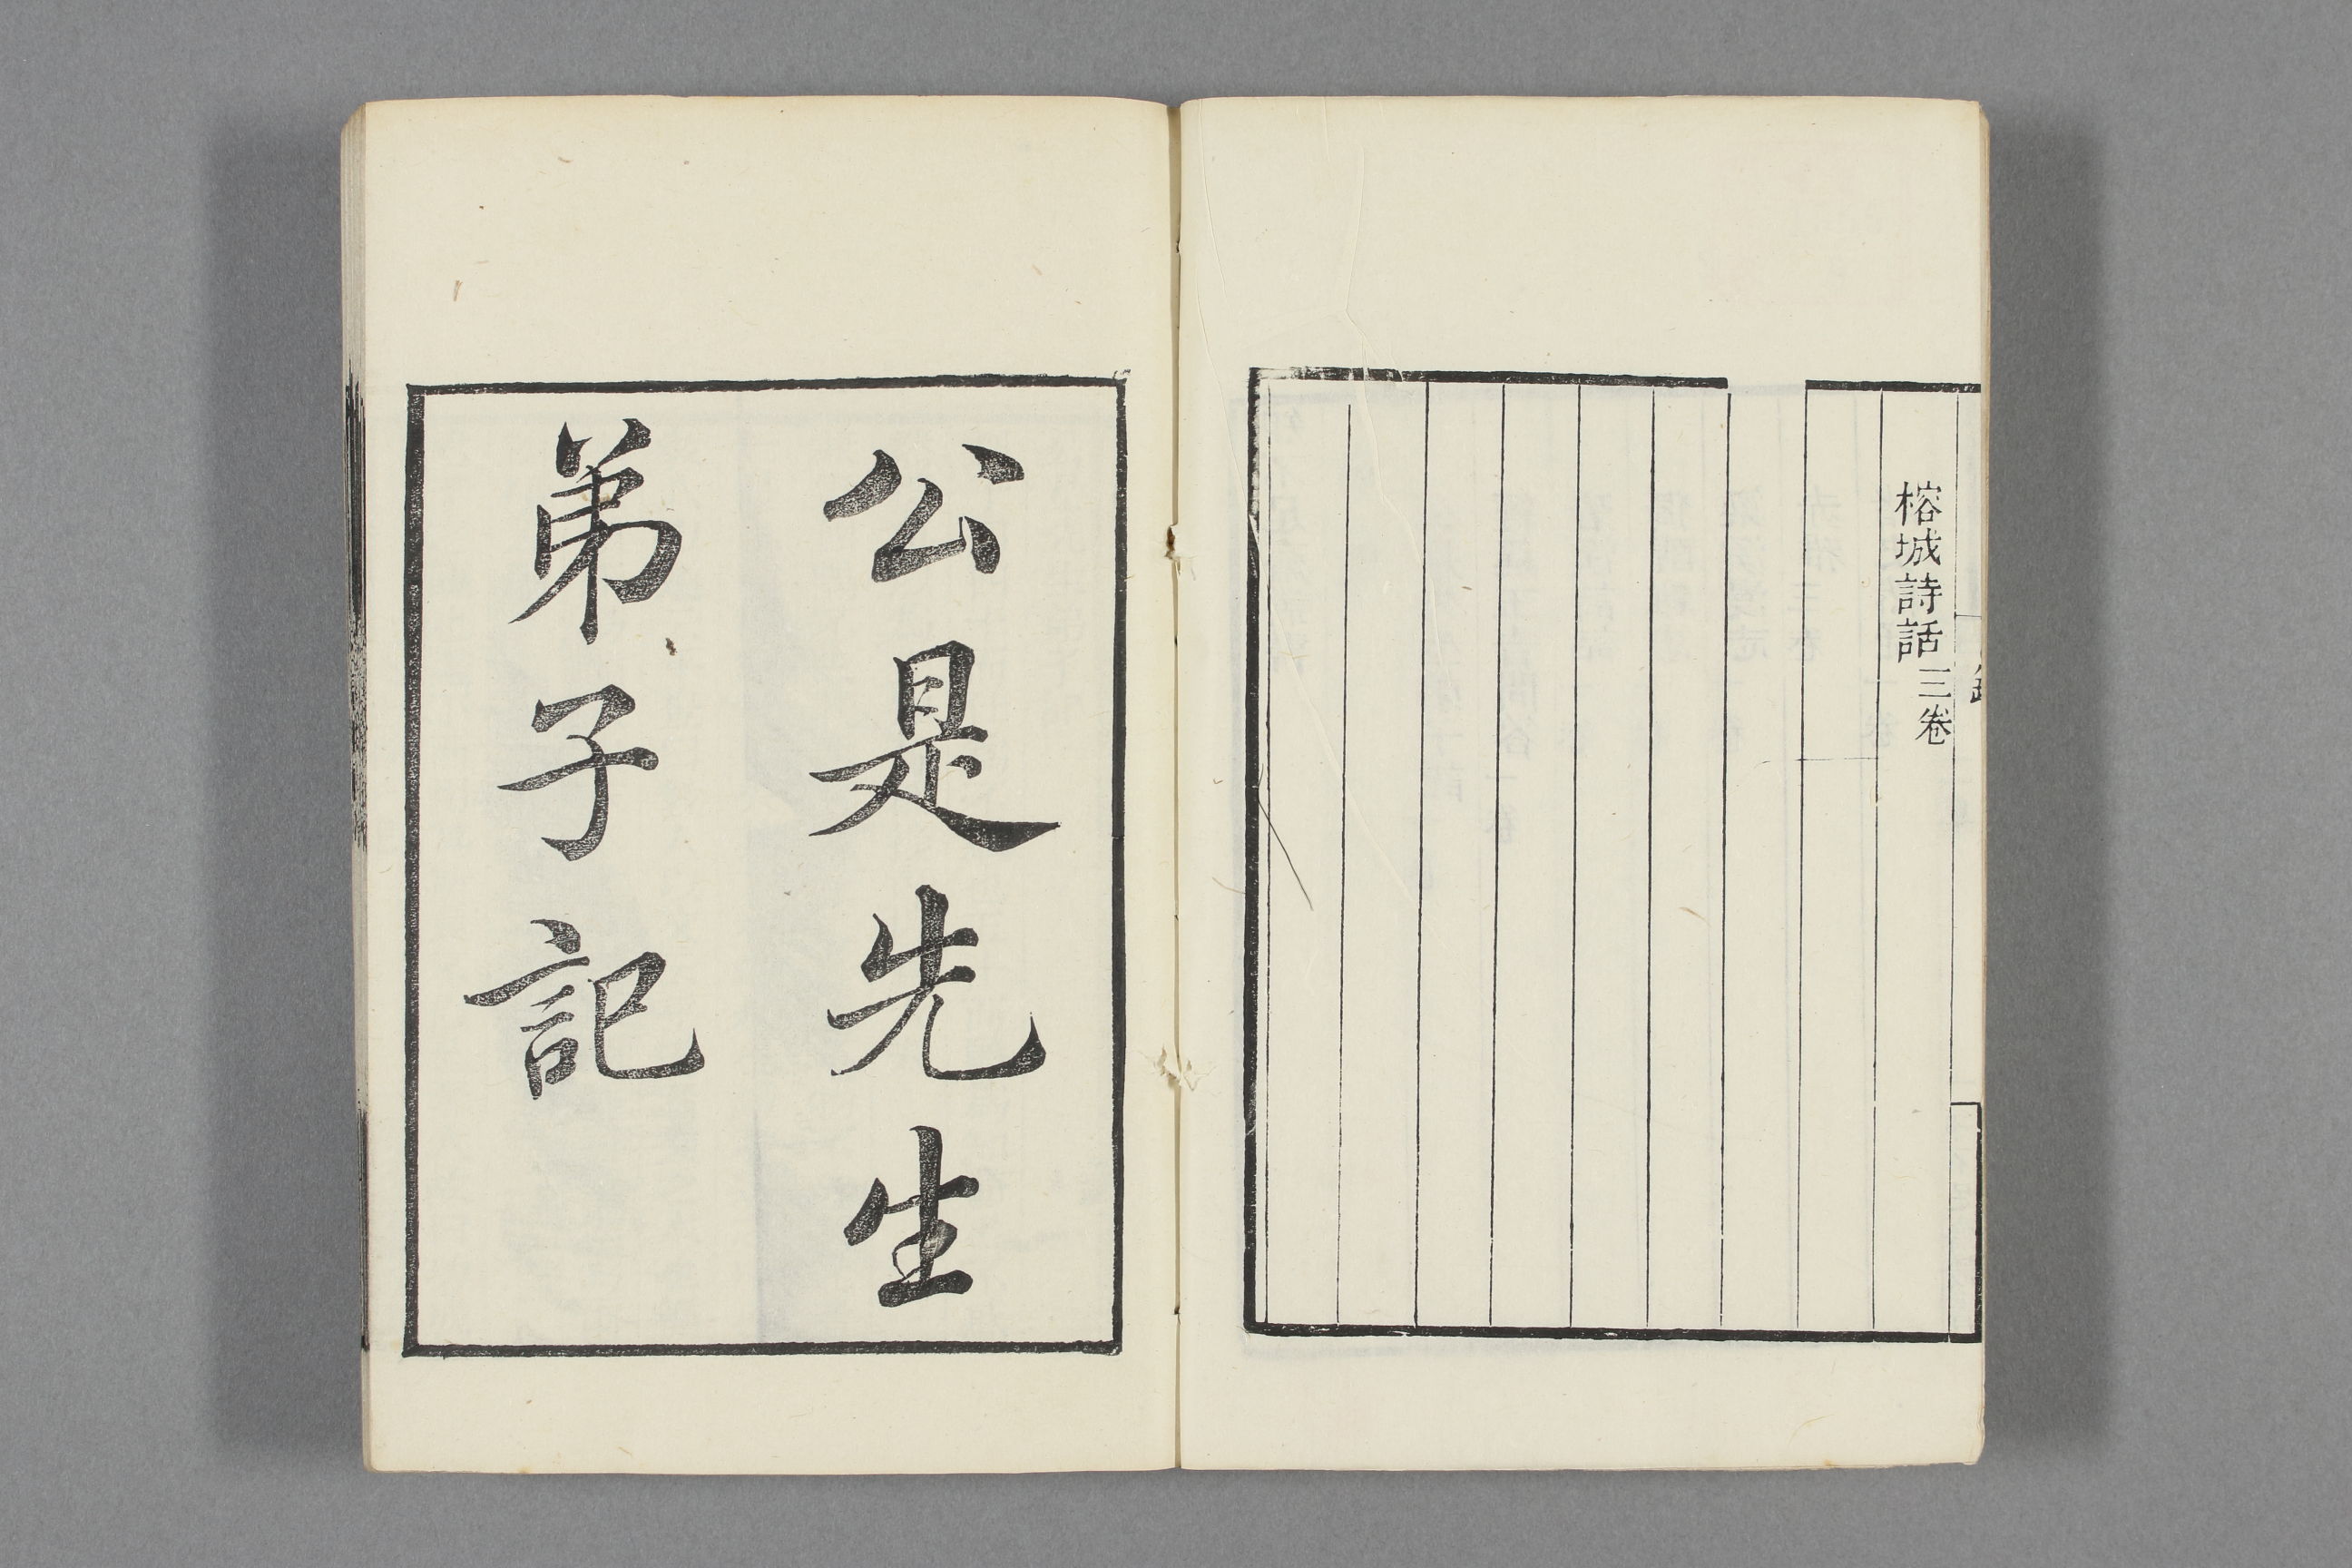 榕城詩話三卷
公是先生
弟子記